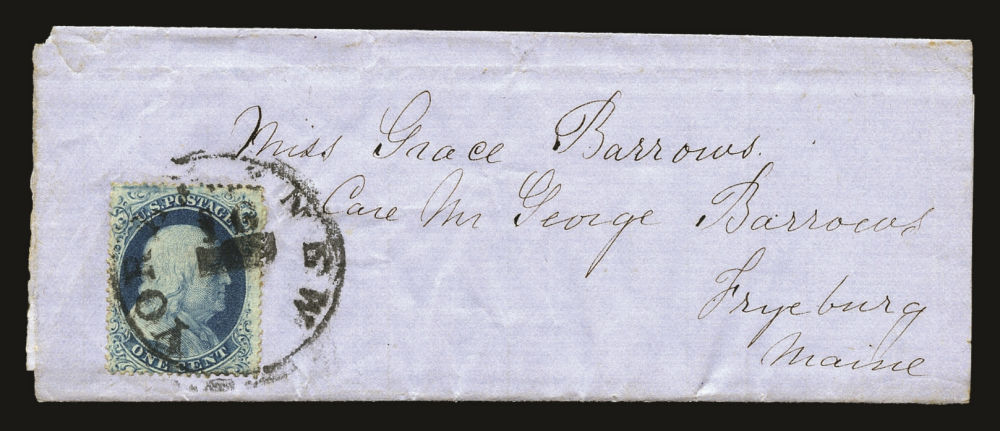 Miss Grace Barrows.
Care Mr George Barrows
Fryeburg
Maine
U.S. POSTAGE
ONE CENT
NEW YORK